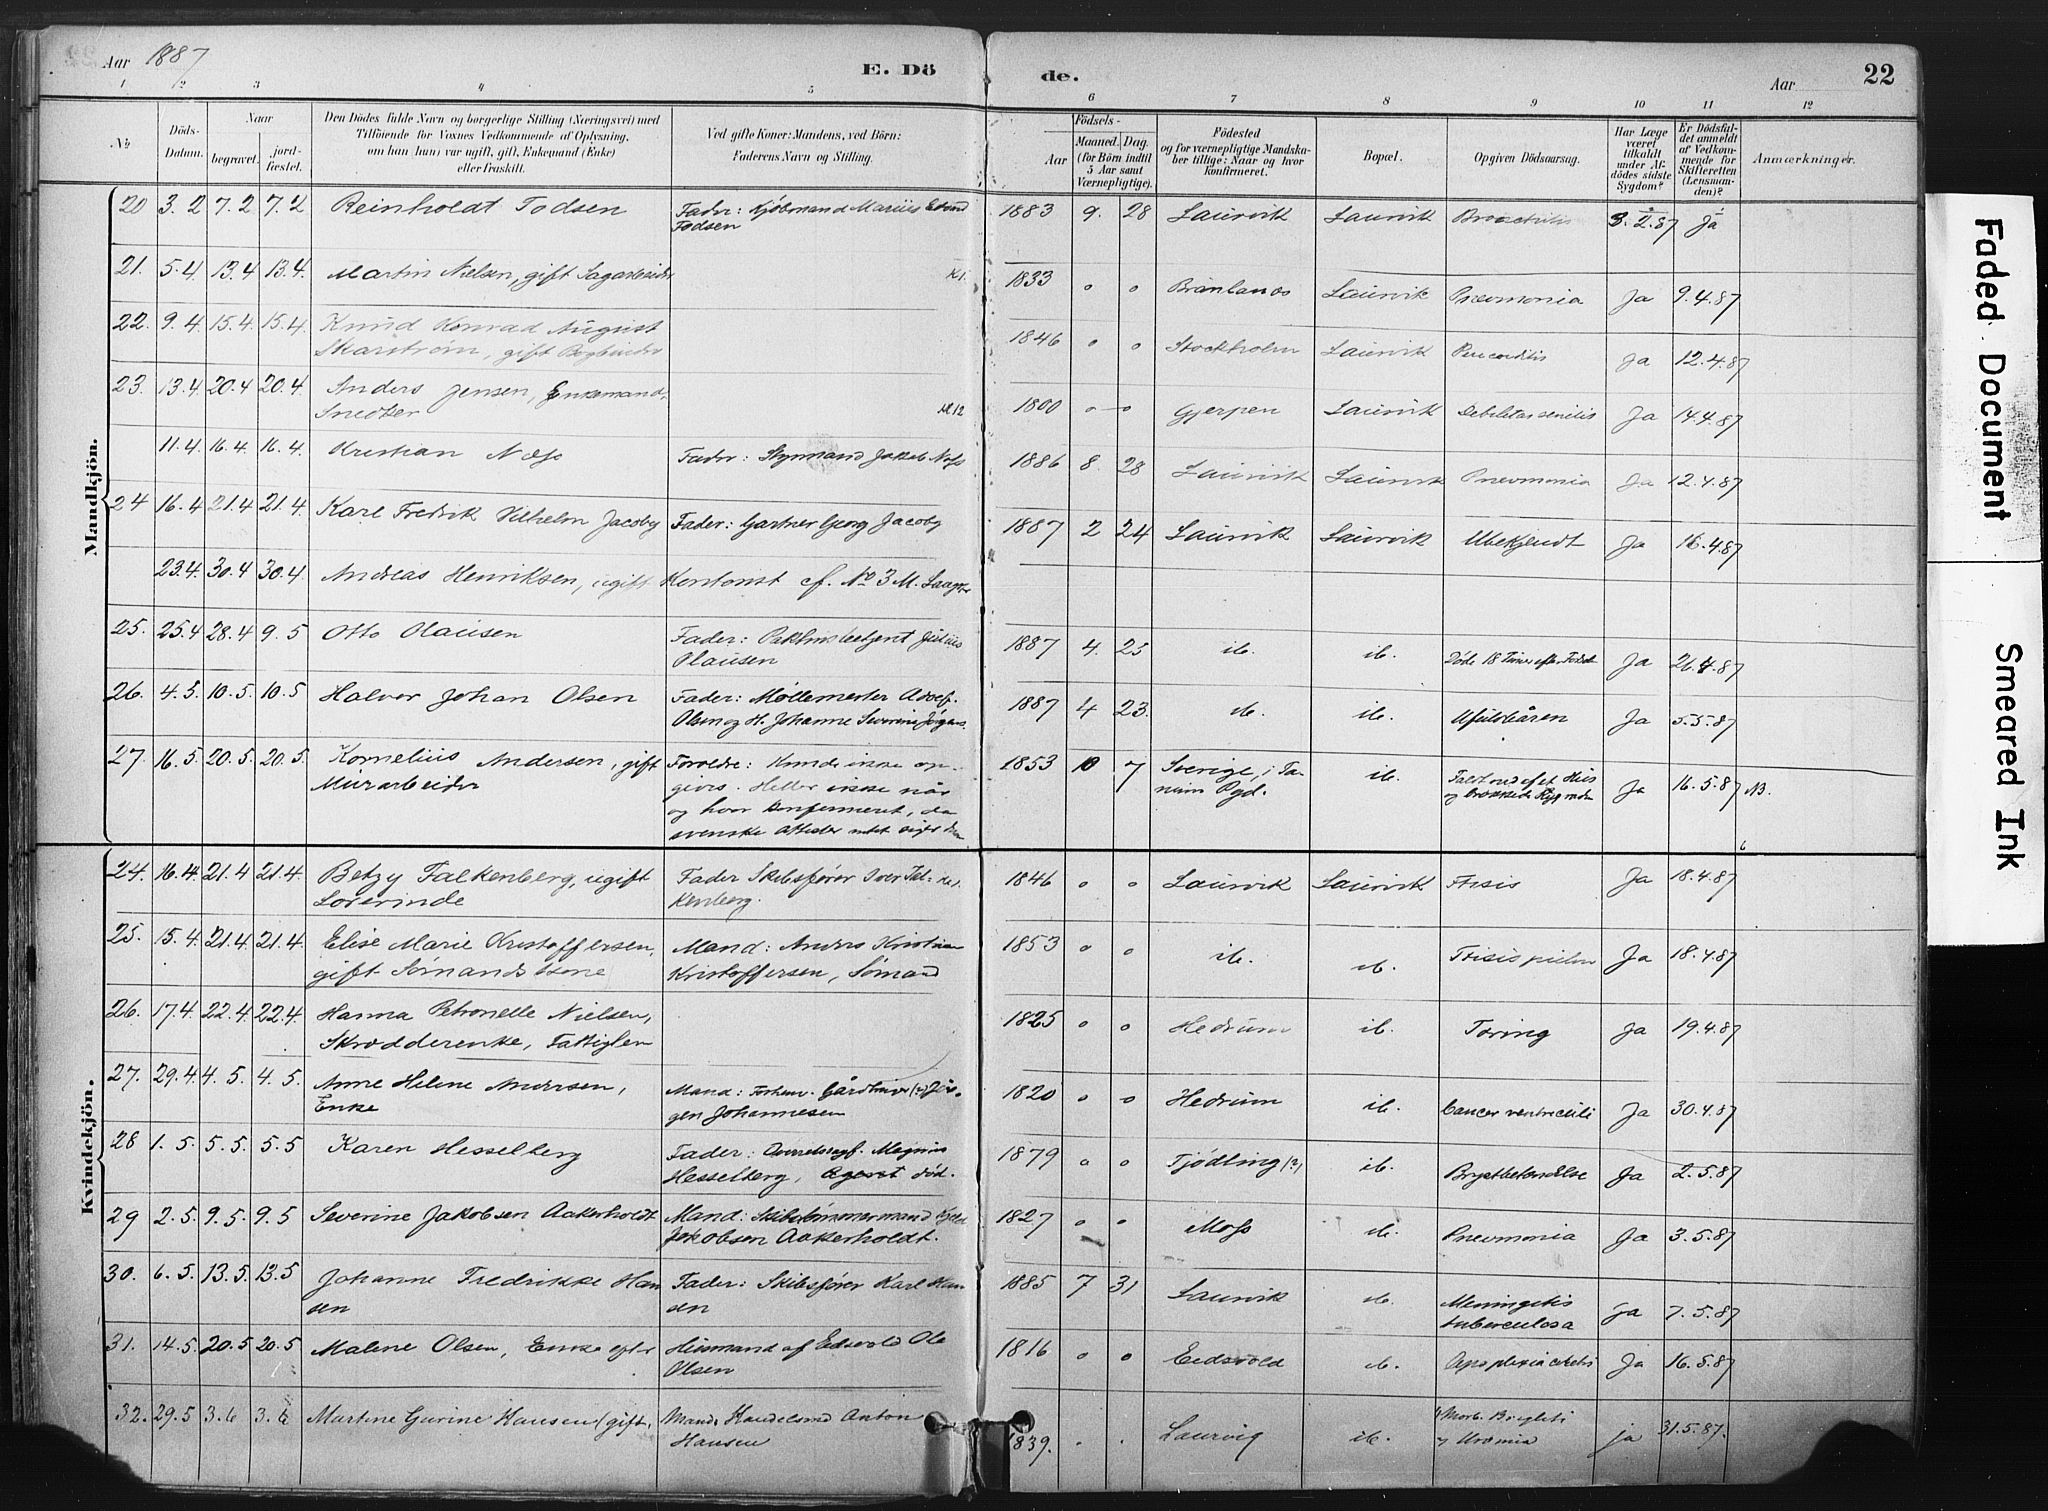 Aar 1887
E. Dö de.
Aar
22
1 2 3 4 5 6 7 8 9 10 11 12
No
Döds-Datum.
Naar
begravet.
jord-fæstet.
Den Dödes fulde Navn og borgerlige Stilling (Næringsvei) med
Tilföiende for Voxnes Vedkommende af Oplysning,
om han (hun) var ugift, gift, Enkemand (Enke)
eller fraskilt.
Ved gifte Koner: Mandens, ved Börn:
Faderens Navn og Stilling.
Födsels-
Aar
Maaned. Dag.
(for Börn indtil
5 Aar samt
Værnepligtige).
Födested
og for værnepligtige Mandska-
ber tillige: Naar og hvor
konfirmeret.
Bopæl.
Opgiven Dödsaarsag.
Har Læge
været
tilkaldt
under Af-
dödes sidste
Sygdom?
Er Dödsfal-
det anmeldt
af Vedkom-
mende for
Skifteretten
(Lensman-
den)?
Anmærkninger.
Mandkjön.
20 3.2 7.2 7.2 Reinholdt Todsen Fader: Kjøbmand Marius Todsen 1883 9. 28 Laurvik Laurvik Bronchitis 3.2.87 Ja
21. 5.4 13.4 13.4. Martin Nielsen, gift K1. 1833 o o Brunlanæs Laurvik Pneumonia Ja 9.4.87
22. 9.4 15.4. 15.4. Knud Konrad August
Skarstrøm, gift Bogbinder 1846 o o Stockholm Laurvik Pericarditis Ja 12.4.87
23. 13.4 20.4 20.4. Anders Jensen, Enkemand,
Snedker 1800 o o Gjerpen Laurvik Debilitas senilis Ja 14.4.87
11.4. 16.4. 16.4. Kristian Næss Fader: Styrmand Jakob Næss 1886 8. 28 Laurvik Laurvik Pneumonia Ja 12.4.87
24 16.4 21.4 21.4. Karl Fredrik Vilhelm Jacoby Fader: Gartner Georg Jacoby 1887 2 24 Laurvik Laurvik Ubekjendt Ja 16.4.87
23.4. 30.4 30.4 Andreas Henriksen, ugift Kontorist cf. No 3 M.
25. 25.4 28.4 9.5 Otto Olausen Fader: Julius
Olausen 1887 4. 25 ib. ib. Døde 18 Timer efter Fødsel Ja 26.4.87
26. 4.5. 10.5. 10.5 Halvor Johan Olsen Fader: Møllemester
Olsen og H. Johanne Severine 1887 4 23. ib. ib. Ufuldbåren Ja 5.5.87
27. 16.5. 20.5. 20.5. Kornelius Andersen, gift
Murarbeider Forældre: Kunde ikke op-
givis. Heller ikke når
og hvor konfirmeret, da
svenske Attester 1853 10 7 Sverige, i Ta-
num Pgd. ib. Ja 16.5.87 NB.
Kvindekjön.
24. 16.4. 21.4 21.4. Betzy Falkenberg, ugift
Lærerinde Fader Skibsfører Iver Fal-
kenberg. 1846 o o Laurvik Laurvik Ftisis Ja 18.4.87
25. 15.4. 21.4. 21.4. Elise Marie Kristoffersen,
gift Sømandskone Mand: Anders Kristian
Kristoffersen, Sømand 1853 o o ib. ib. Ftisis pulm Ja 18.4.87
26. 17.4. 22.4. 22.4. Hanna Petronelle Nielsen,
Skrædderenke, Fattiglem 1825 o o Hedrum ib. Tæring Ja 19.4.87
27. 29.4. 4.5. 4.5. Anne Helene Andersen,
Enke Mand: (?) Jør-
gen Johannesen 1820 o o Hedrum ib. Cancer ventriculi Ja 30.4.87
28 1.5. 5.5. 5.5 Karen Hesselberg Fader: Magnus
Hesselberg, død. 1879 o o Tjødling (?) ib. Brystbetændelse Ja 2.5.87
29 2.5. 9.5. 9.5 Severine Jakobsen Aakerholdt Mand: Skibstømmermand
Jakobsen Aakerholdt. 1827 o o Moss ib. Pneumonia Ja 3.5.87
30. 6.5. 13.5. 13.5 Johanne Fredrikke Han
sen Fader: Skibsfører Karl Han
sen 1885 7 31 Laurvik ib. Meningitis
tuberculosa ja 7.5.87
31. 14.5. 20.5 20.5 Malene Olsen, Enke efter Husmand af Edsvold Ole
Olsen 1816 o o Eidsvold ib. Apoplexia Ja 16.5.87
32. 29.5 3.6 3.6 Martine Gurine Hansen (gift. Mand: Anton
Hansen 1839. . . Laurvig ib. Morb. Brighti
og Uræmia ja 31.5.87.
Faded Document
Smeared Ink